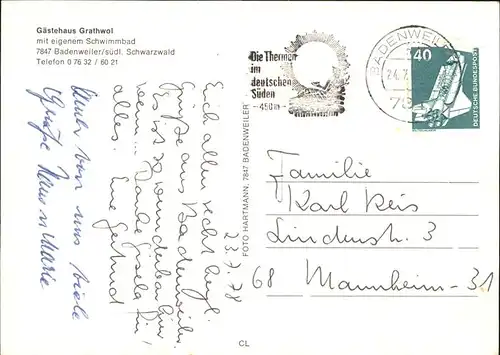 Gästehaus Grathwol
mit eigenem Schwimmbad
7847 Badenweiler/südl. Schwarzwald
Telefon 0 76 32 / 60 21
23.7.78
Euch allen recht herzl.
Grüße aus Badenweiler.
Es ist so wunderbar hier
alles! Eure Gertrud
Auch von uns viele
Grüße
FOTO HARTMANN, 7847 BADENWEILER
CL
Die Thermen
im
deutschen
Süden
- 450 m -
BADENWEILER
24.7.
78
40
DEUTSCHE BUNDESPOST
Familie
Karl Reis
Lindenstr. 3
68 Mannheim-31